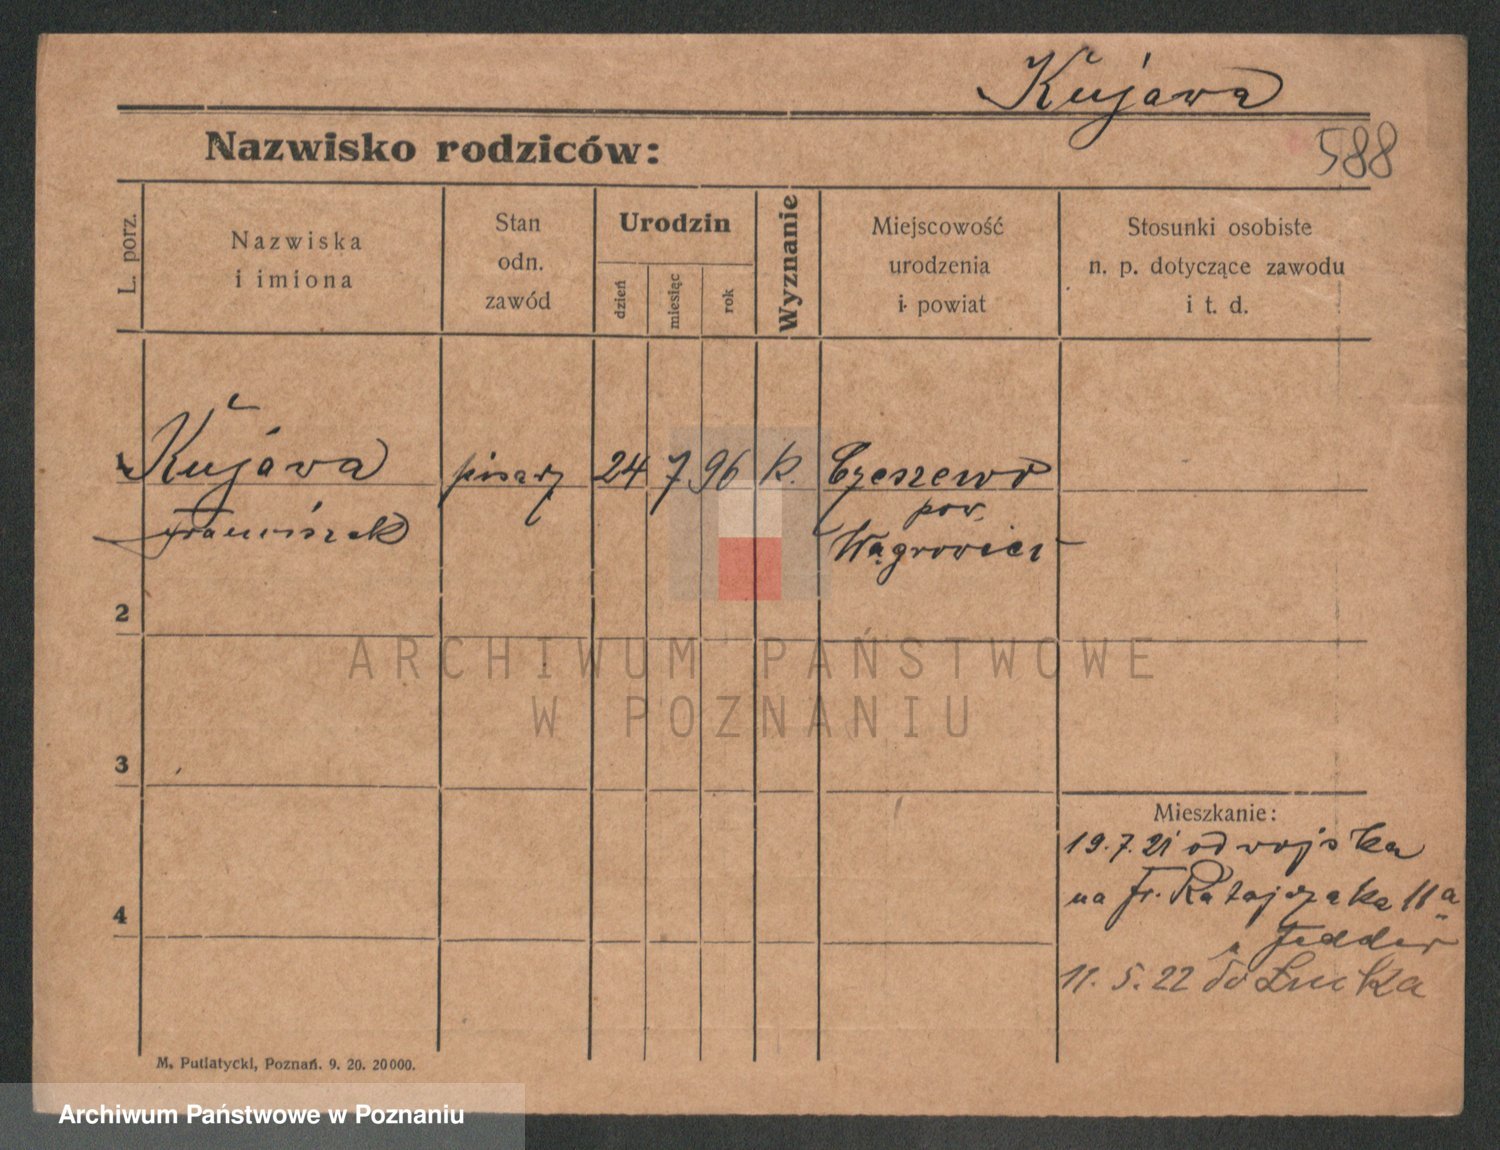 Kujawa
Nazwisko rodziców:
588
L. porz.
Nazwiska
i imiona
Stan
odn.
zawód
Urodzin
dzień
miesiąc
rok
Wyznanie
Miejscowość
urodzenia
i powiat
Stosunki osobiste
n. p. dotyczące zawodu
i t. d.
Kujawa pisarz 24 7 96 k. Czeszewo
Franciszek
pow.
Wągrowiec
2
ARCHIWUM PAŃSTWOWE
W POZNANIU
3
Mieszkanie:
19.7.21 od wojska
na Fr. Ratajczaka 11a
4
11.5.22 do Łucka
M. Putiatycki, Poznań. 9. 20. 20000.
Archiwum Państwowe w Poznaniu